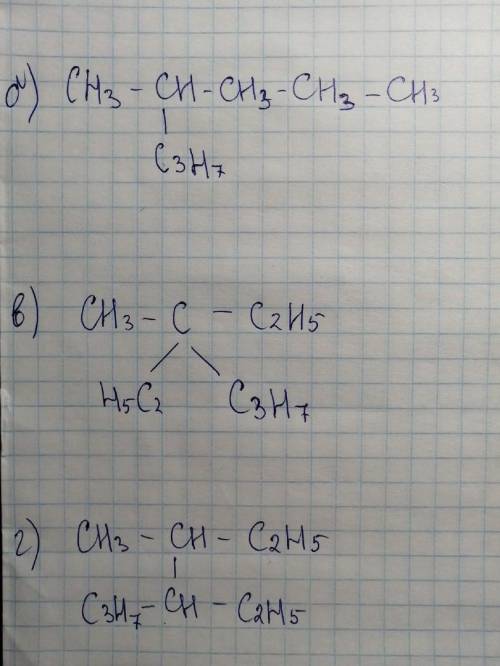 б) CH3 - CH - CH3 - CH3 - CH3
C3H7
в) CH3 - C - C2H5
H5C2 C3H7
г) CH3 - CH - C2H5
C3H7 - CH - C2H5